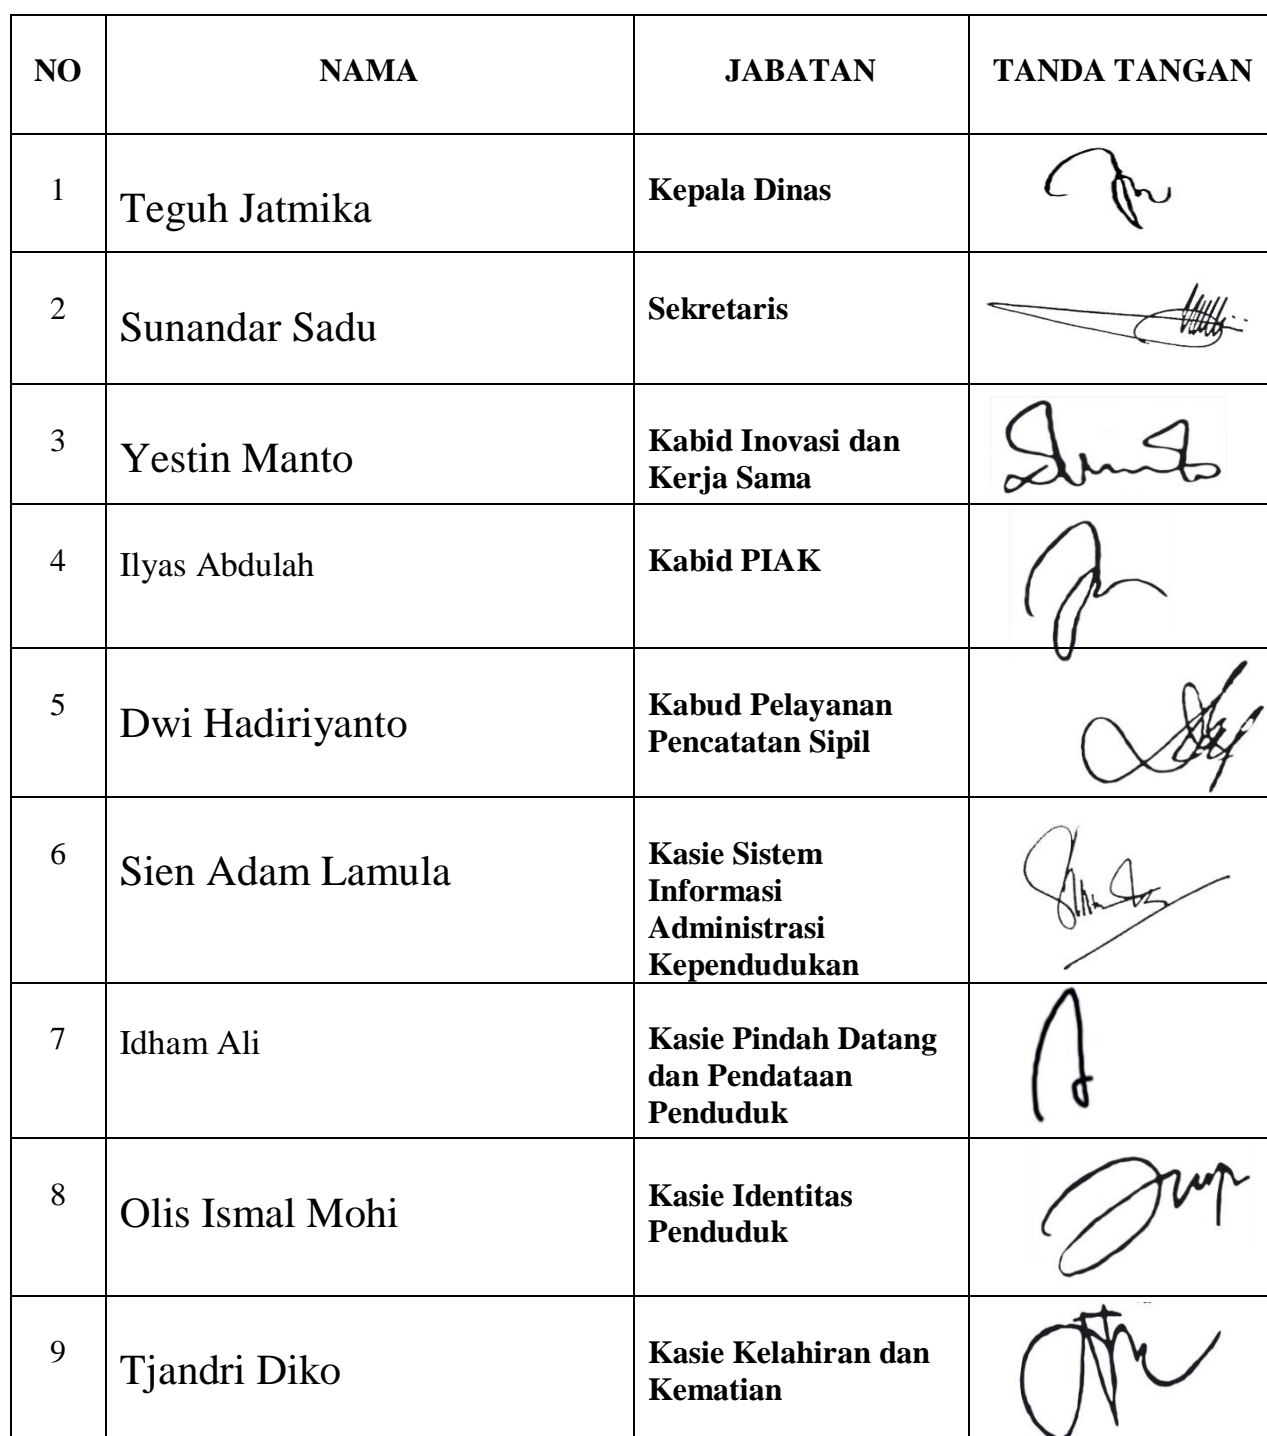 NO NAMA JABATAN TANDA TANGAN
1 Teguh Jatmika Kepala Dinas
2 Sunandar Sadu Sekretaris
3 Yestin Manto Kabid Inovasi dan
Kerja Sama
4 Ilyas Abdulah Kabid PIAK
5 Dwi Hadiriyanto Kabud Pelayanan
Pencatatan Sipil
6 Sien Adam Lamula Kasie Sistem
Informasi
Administrasi
Kependudukan
7 Idham Ali Kasie Pindah Datang
dan Pendataan
Penduduk
8 Olis Ismal Mohi Kasie Identitas
Penduduk
9 Tjandri Diko Kasie Kelahiran dan
Kematian